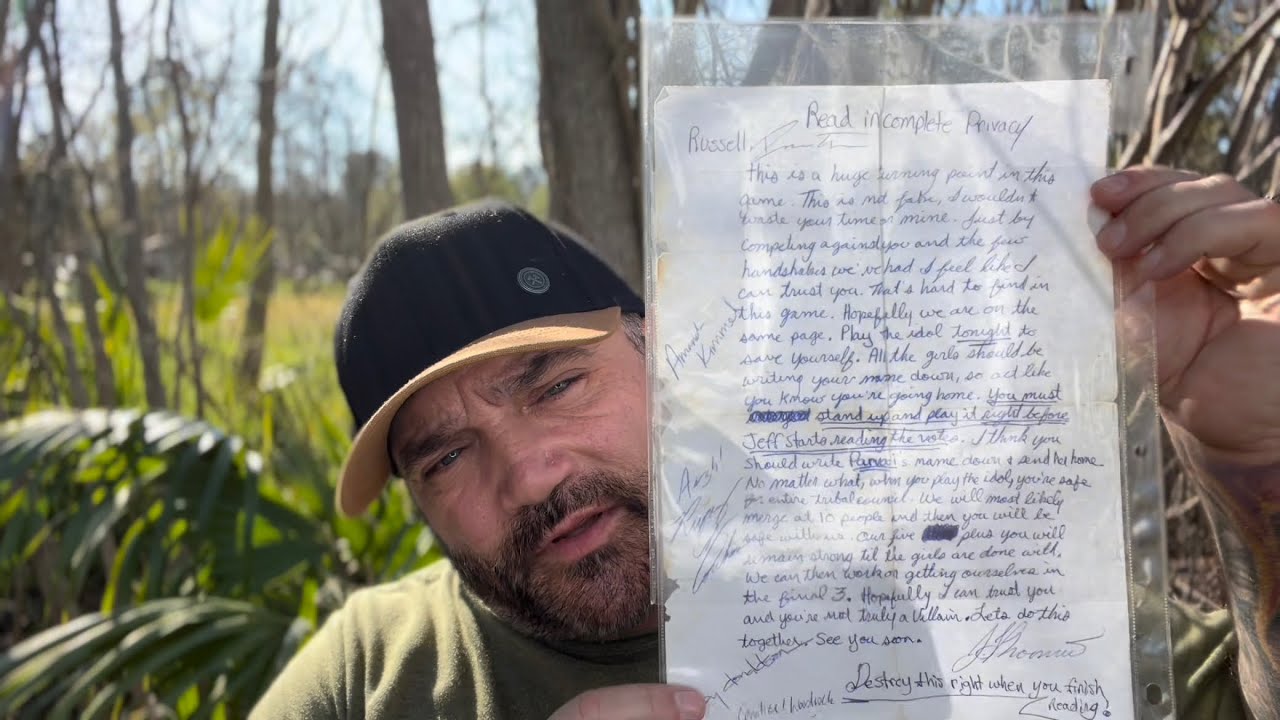 Read in complete Privacy
Russell,
this is a huge turning point in this
game. This is not fake, I wouldn't
waste your time or mine. Just by
competing against you and the few
handshakes we've had I feel like I
can trust you. That's hard to find in
this game. Hopefully we are on the
same page. Play the idol tonight to
save yourself. All the girls should be
writing your name down, so act like
you know you're going home. You must
stand up and play it right before
Jeff starts reading the votes. I think you
should write Parvati's name down & send her home
No matter what, when you play the idol, you're safe
for entire tribal council. We will most likely
merge at 10 people and then you will be
safe with us. Our five plus you will
remain strong til the girls are done with.
We can then work on getting ourselves in
the final 3. Hopefully I can trust you
and you're not truly a Villain. Lets do this
together. See you soon.
JThomas
Destroy this right when you finish
reading!
Amanda
Kimmel